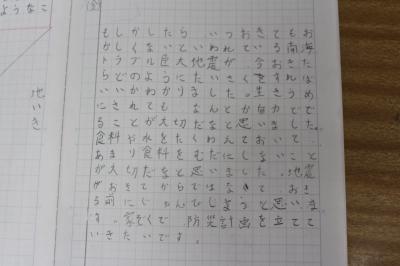 (金)
もしかしたら いつおきてもお
かしくないといわれている南海
トラフル巨大地震が 今おきた
らどのようにたいさくをすれば
いいかわかりました。生きうめ
にされても なんとか自力でで
ることが大切だなと思いました。
食料や水をたくわえておいて
あまり食料をむだにしないこと
が大切だなと思いました。地震
がおきてからではなくて おき
る前にじゅんびしようと思いま
す。家ぞくで 防災計画を立てて
いきたいです。
ようなこ
地いき